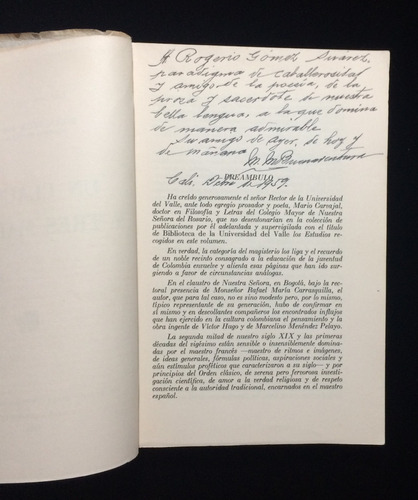 A Rogerio Gómez Suarez,
paradigma de caballerosidad
y amigo de la poesía, de la
prosa y sacerdote de nuestra
bella lengua, a la que domina
de manera admirable
Su amigo de ayer, de hoy
y de mañana,
M. M. Buenaventura
Cali, 1959.
PREÁMBULO
Ha creído generosamente el señor Rector de la Universidad
del Valle, ante todo egregio prosador y poeta, Mario Carvajal,
doctor en Filosofía y Letras del Colegio Mayor de Nuestra
Señora del Rosario, que no desmonlarían en la colección de
publicaciones por él adelantada y supervigilada con el título
de Biblioteca de la Universidad del Valle los Estudios reco-
gidos en este volumen.
En verdad, la categoría del magisterio los liga y el recuerdo
de un noble recinto consagrado a la educación de la juventud
de Colombia envuelve y alienta esas páginas que han ido sur-
giendo a favor de circunstancias análogas.
En el claustro de Nuestra Señora, en Bogotá, bajo la rec-
toral presencia de Monseñor Rafael María Carrasquilla, el
autor, que para tal caso, no es sino modesto pero, por lo mismo,
típico representante de su generación, hubo de confirmar en
sí mismo y en descollantes compañeros los encontrados influjos
que han ejercido en la cultura colombiana el pensamiento y la
obra ingente de Víctor Hugo y de Marcelino Menéndez Pelayo.
La segunda mitad de nuestro siglo XIX y las primeras
décadas del vigésimo están sensible o insensiblemente domina-
das por el maestro francés —maestro de ritmos e imágenes,
de ideas generales, fórmulas políticas, aspiraciones sociales y
aún estímulos proféticos que caracterizaron a su siglo— y por
principios del Orden clásico, de serena pero fervorosa investi-
gación científica, de amor a la verdad religiosa y de respeto
consciente a la autoridad tradicional, encarnados en el maestro
español.